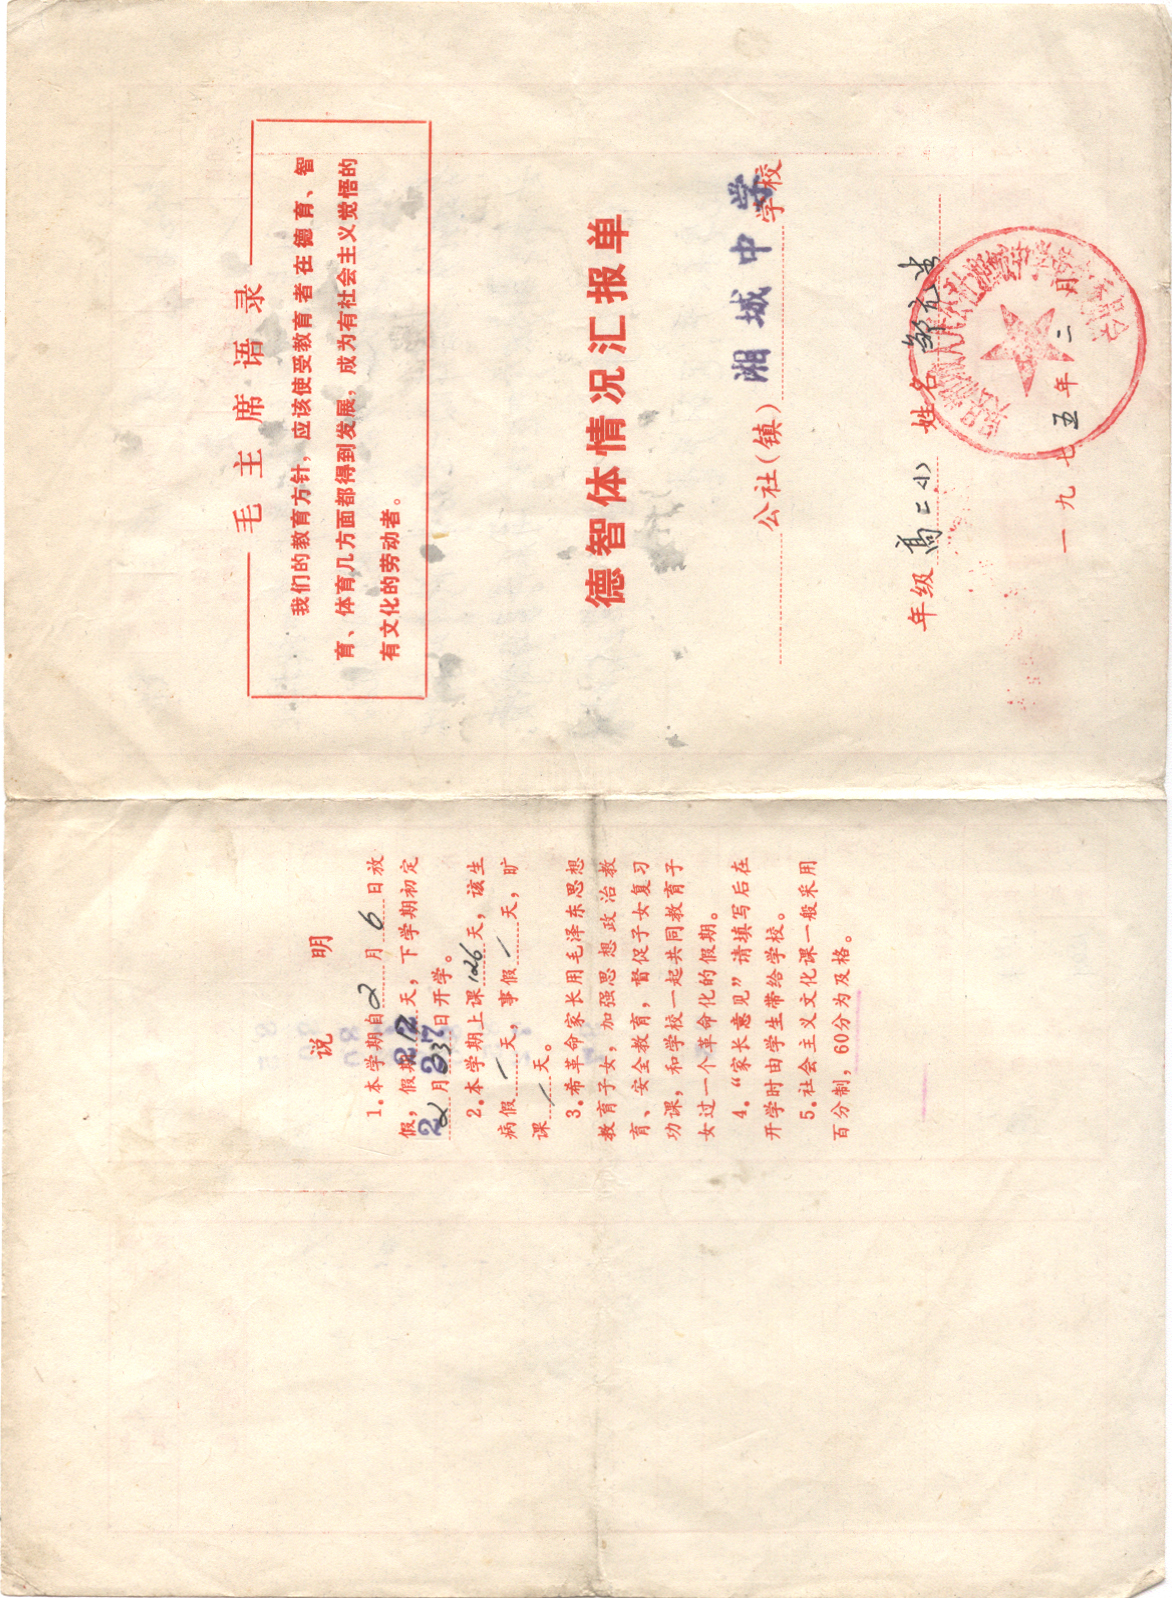 毛主席语录
我们的教育方针，应该使受教育者在德育、智
育、体育几方面都得到发展，成为有社会主义觉悟的
有文化的劳动者。
德智体情况汇报单
公社（镇）湘城中学学校
年级高二(1)姓名
一九七五年二月
说明
1.本学期自2月6日放
假，假期12天，下学期初定
2月27日开学。
2.本学期上课126天，该生
病假/天，事假/天，旷
课/天。
3.希革命家长用毛泽东思想
教育子女，加强思想政治教
育、安全教育，督促子女复习
功课，和学校一起共同教育子
女过一个革命化的假期。
4.“家长意见”请填写后在
开学时由学生带给学校。
5.社会主义文化课一般采用
百分制，60分为及格。